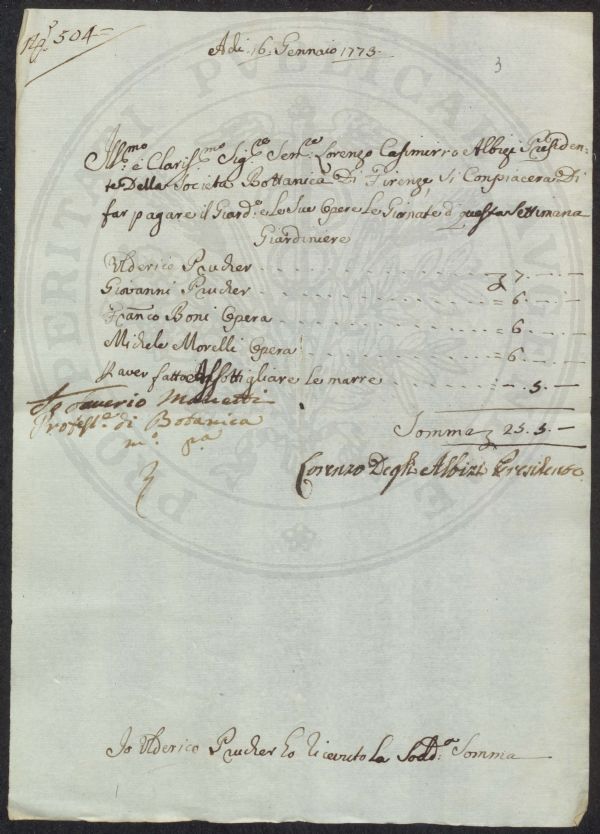 N.º 504=
3
Adi 16. Gennaio 1773.
Ill.mo e Clariss.mo Sig.re Sen.re Lorenzo Casimirro Albizi Presiden=
te Della Societa Bottanica Di Firenze, Si Conpiacera Di
far pagare il Giard.e e Le Sue Opere Le Giornate d questa Settimana
Giardiniere
Ulderico Prucher 7. -
Giovanni Prucher = 6. -
Franco Boni Opera = 6. -
Michele Morelli Opera = 6. -
P aver fatto Assottigliare Le marre - 5. -
Saverio Manetti
Profess.e di Botanica
m.o p.a
Somma 25. 5. -
Lorenzo Degli Albizi Presidente
Io Ulderico Prucher ho ricevuto La Sodd.a Somma